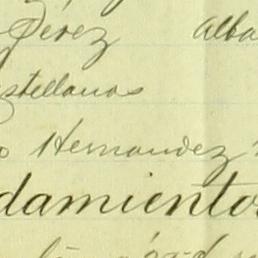 Pérez Alba
stellanos
o Hernandez
damiento